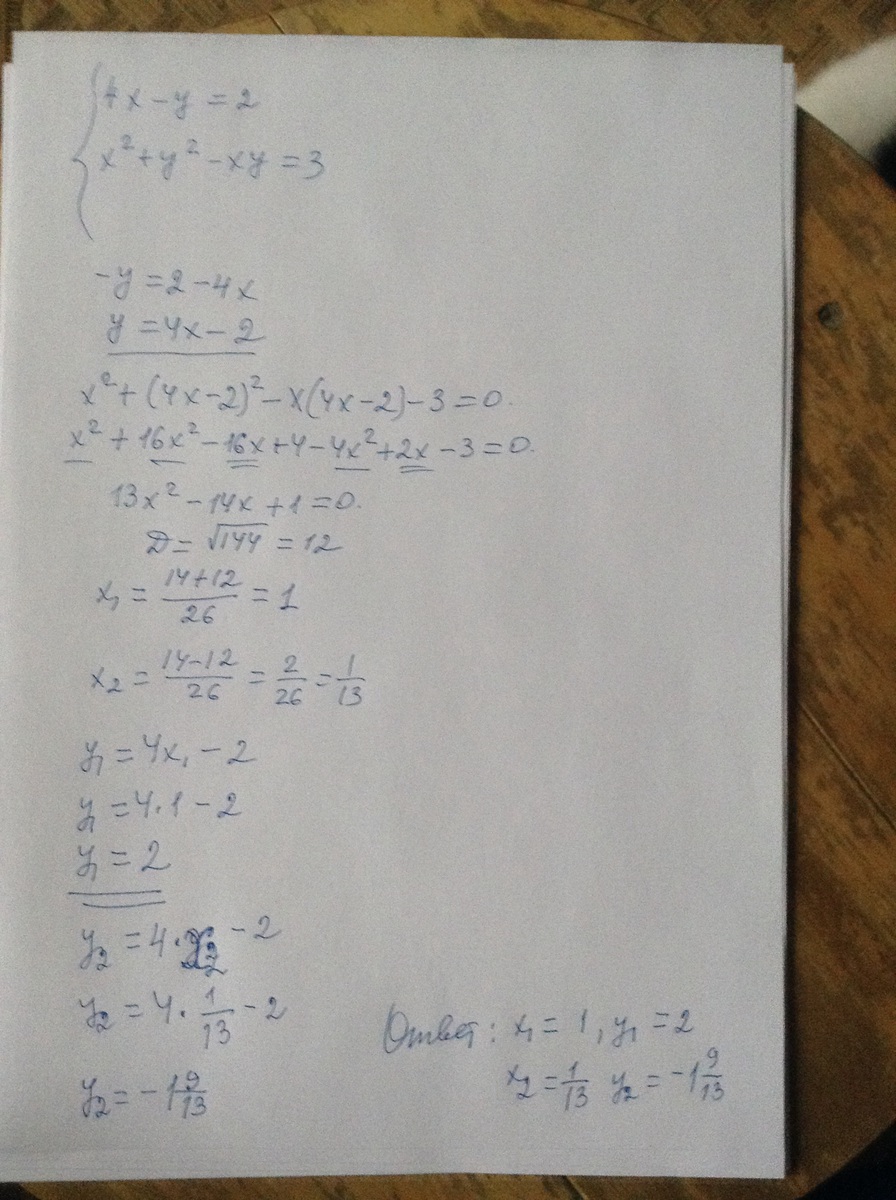 {4x - y = 2
x² + y² - xy = 3
-y = 2 - 4x
y = 4x - 2
x² + (4x - 2)² - x(4x - 2) - 3 = 0.
x² + 16x² - 16x + 4 - 4x² + 2x - 3 = 0.
13x² - 14x + 1 = 0.
D = √144 = 12
x₁ = (14+12)/26 = 1
x₂ = (14-12)/26 = 2/26 = 1/13
y₁ = 4x₁ - 2
y₁ = 4·1 - 2
y₁ = 2
y₂ = 4·x₂ - 2
y₂ = 4·1/13 - 2
y₂ = -1 9/13
Ответ: x₁ = 1, y₁ = 2
x₂ = 1/13 y₂ = -1 9/13